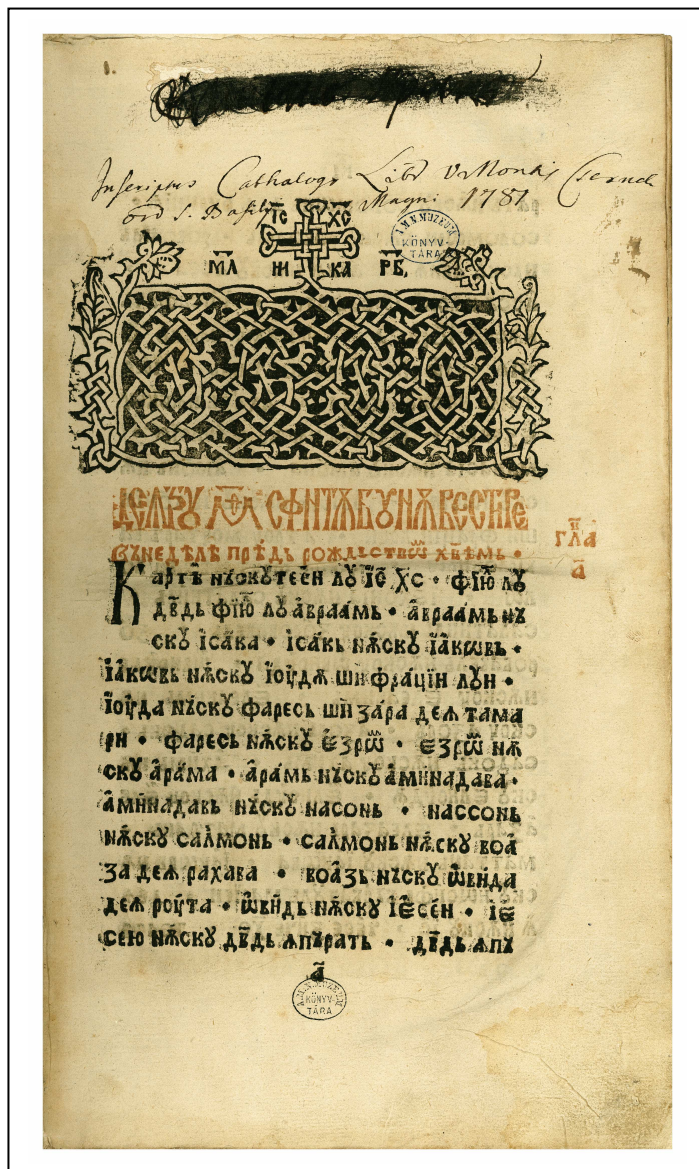 1.
Inscriptus Cathalogo Libr
ord S. Basilii Magni 1781
І҃С Х҃С
A.M.N.MUZEUM
KÖNYV-
TÁRA
МЛ НИ КА РВ,
СФНТѦ БУНѦ ВЕСТИРЕ
ВꙊНЕДѢЛѢ ПРЕ́ДЬ РОЖДЕСТВѠ҃ ХВ҃ѢМЬ •
ГЛ҃А
А҃
Картѣ нъскутеен лꙋ І҃С Х҃С • фїю лꙋ
дв҃дь фїю лꙋ авраамь • авраамь нъ
скꙋ ісака • ісакь нѫскꙋ іаковь •
іаковь нѫскꙋ іоуда шифраціи лꙋи •
іоуда нъскꙋ фаресь шизара деѧ тама
ри • фаресь нѫскꙋ езрѡ • езрѡ нѫ
скꙋ арама • арамь нъскꙋ аминадава •
аминадавь нъскꙋ насонь • нассонь
нѫскꙋ салмонь • салмонь нѫскꙋ воа
за деѧ рахава • воазь нъскꙋ ѡвида
деѧ роута • ѡвидь нѫскꙋ іесеи • іе
сею нѫскꙋ дв҃дь ѧпърать • дв҃дь ѧпъ
а҃
A.M.N.MUZEUM
KÖNYV-
TÁRA